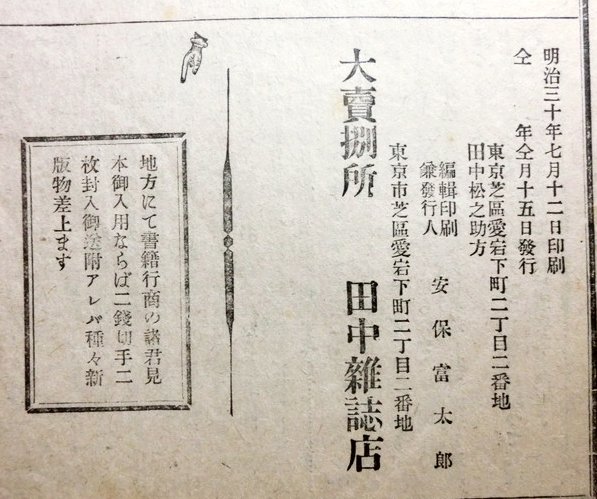 明治三十年七月十二日印刷
仝 年仝月十五日發行
東京芝區愛宕下町二丁目二番地
田中松之助方
編輯印刷
兼發行人 安保富太郎
東京市芝區愛宕下町二丁目二番地
大賣捌所 田中雜誌店
地方にて書籍行商の諸君見
本御入用ならば二錢切手二
枚封入御送附アレバ種々新
版物差上ます